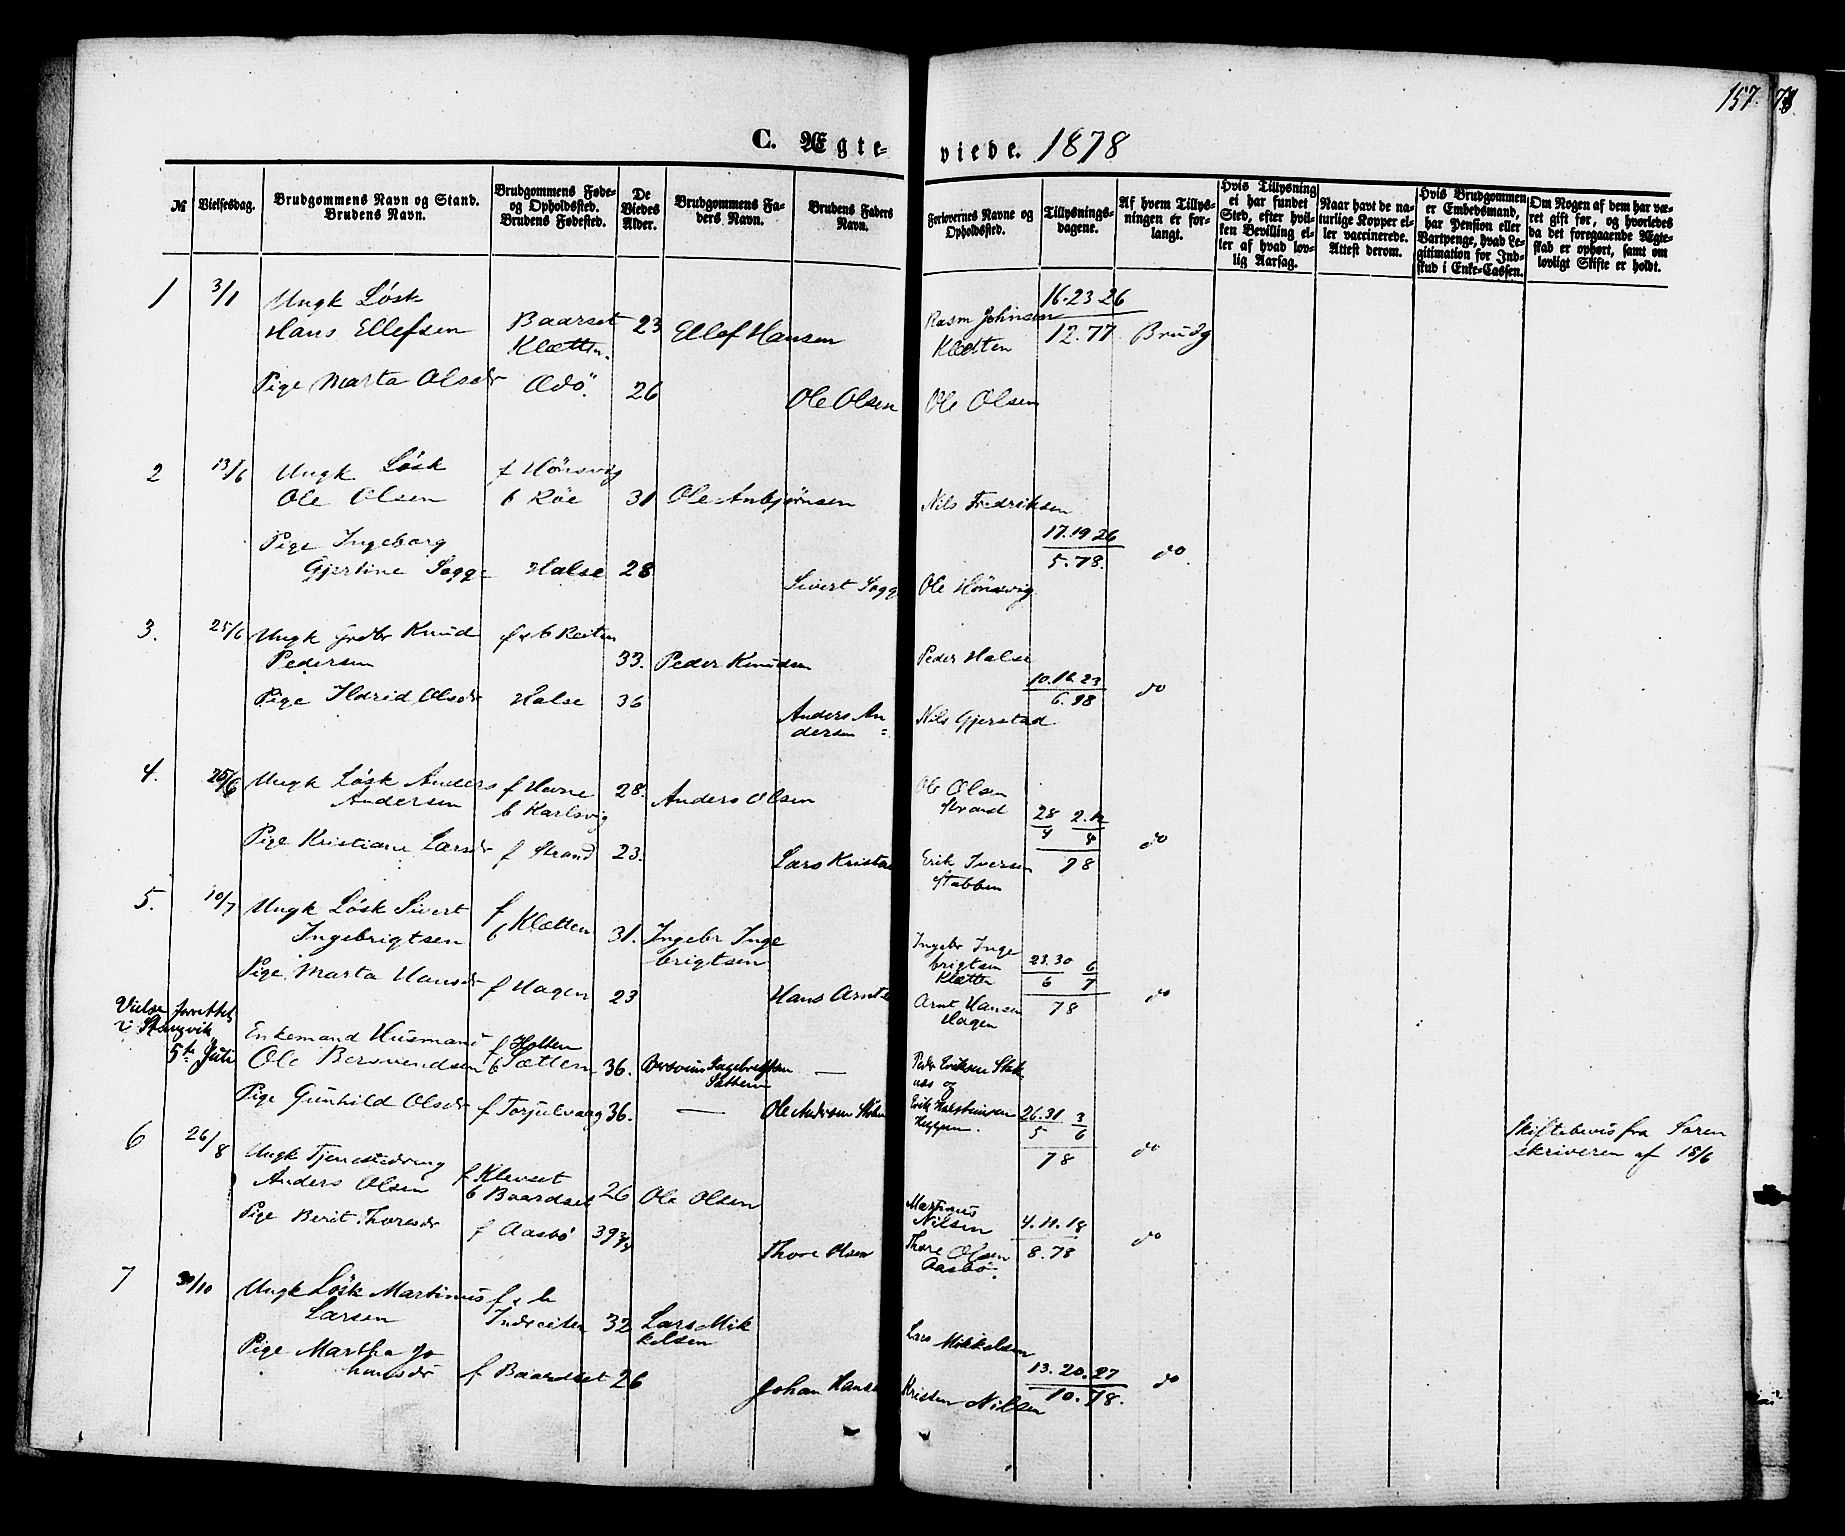 157.
C. Ægteviede. 1878
№
Vielsesdag.
Brudgommens Navn og Stand. Brudens Navn.
Brudgommens Føde- og Opholdssted. Brudens Fødested.
De Viedes Alder.
Brudgommens Faders Navn.
Brudens Faders Navn.
Forlovernes Navne og Opholdssted.
Tillysningsdagene.
Af hvem Tillysningen er forlangt.
Hvis Tillysning ei har fundet Sted, efter hvilken Bevilling eller af hvad lovlig Aarsag.
Naar havt de naturlige Kopper eller vaccinerede. Attest derom.
Hvis Brudgommen er Embedsmand, har Pension eller Vartpenge, hvad Legitimation for Indskud i Enke-Cassen.
Om Nogen af dem har været gift før, og hvorledes da det foregaaende Ægteskab er ophørt, samt om lovligt Skifte er holdt.
1 3/1 Ungk Løsk
Hans Ellefsen Baarset Klætten. 23 Ellef Hansen Rasm Johnsen Klætten 16.23 26 12.77 Brudg
Pige Marta Olsdr Ædö. 26 Ole Olsen Ole Olsen
2 13/6 Ungk Løsk f Hönsvig
Ole Olsen b Röe 31 Ole Anbjörnsen Nils Fredriksen
Pige Ingeborg 17.19 26
Gjertine Sogge Halse 28 Sivert Sogg Ole Hönsvig 5.78. do
3. 25/6 Ungk Grdbr Knud f & b Reiten
Pedersen 33. Peder Knudsen Peder Halse 10.16.23
Pige Ildrid Olsdr Halse 36 Anders Andersen Nils Gjerstad 6.98 do
4. 25/6 Ungk Løsk Anders f Havne 28. Ole Olsen
Andersen b Karlsvig Anders Olsen Strand 28/4 2.12/4
Pige Kristiane Larsdr f Strand 23. Lars Kristen Erik Iversen Stabben 78 do
5. 10/7 Ungk Løsk Sivert f
Ingebrigtsen b Klætten 31. Ingebr Ingebrigtsen Ingebr Ingebrigtsen Klætten 23.30/6 6/7
Pige Marta Hansdr f Hagen 23 Hans Arnts Arnt Hansen Hagen 78 do
Vielse forrettet i Stangvik 5te Juli
Enkemand Husmand f Holten
Ole Bersvendsen b Sætten 36. — Peder Eriksen
Pige Gunhild Olsdr f Torjulvaag 36. — Ole Andersen Erik Halsteinsen 26.31/5 3/6
78 do Skiftebevis fra Sorenskriveren af 18/6
6 26/8 Ungk Tjenestedreng f Klevset
Anders Olsen b Baardset 26 Ole Olsen Martinus Nilsen 4.11.18
Pige Berit Thoresdr f Aasbö 39 3/4 Thore Olsen Thore Olsen Aasbö. 8.78 do
7 30/10 Ungk Løsk Martinus f & b
Larsen Indreiten 32 Lars Mikkelsen Lars Mikkelsen
Pige Martha Johansdr f Baardset 26 Johan Hans Kristen Nilsen 13.20.27 10.78. do